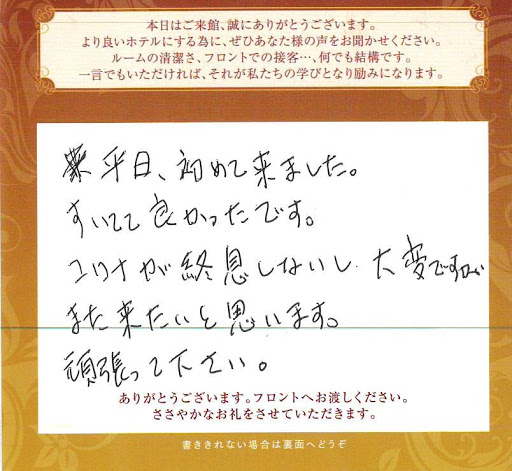 本日はご来館、誠にありがとうございます。
より良いホテルにする為に、ぜひあなた様の声をお聞かせください。
ルームの清潔さ、フロントでの接客…、何でも結構です。
一言でもいただければ、それが私たちの学びとなり励みになります。
平日、初めて来ました。
すいてて良かったです。
コロナが終息しないし、大変ですが
また来たいと思います。
頑張って下さい。
ありがとうございます。フロントへお渡しください。
ささやかなお礼をさせていただきます。
書ききれない場合は裏面へどうぞ